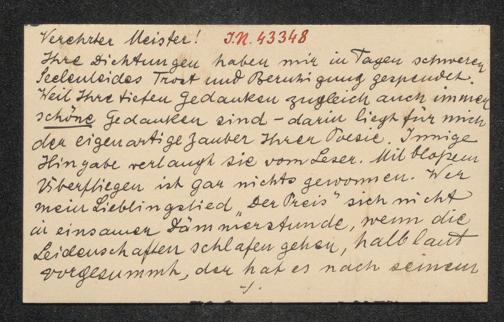 Verehrter Meister! I.N. 43348
Ihre Dichtungen haben mir in Tagen schweren
Seelenleides Trost und Beruhigung gespendet.
Weil Ihre tiefen Gedanken zugleich auch immer
schöne Gedanken sind – darin liegt für mich
der eigenartige Zauber Ihrer Poesie. Innige
Hingabe verlangt sie vom Leser. Mit bloßem
Überfliegen ist gar nichts gewonnen. Wer
mein Lieblingslied „Der Preis" sich nicht
in einsamer Dämmerstunde, wenn die
Leidenschaften schlafen gehen, halblaut
vorgesummt, der hat es nach seinem
./.